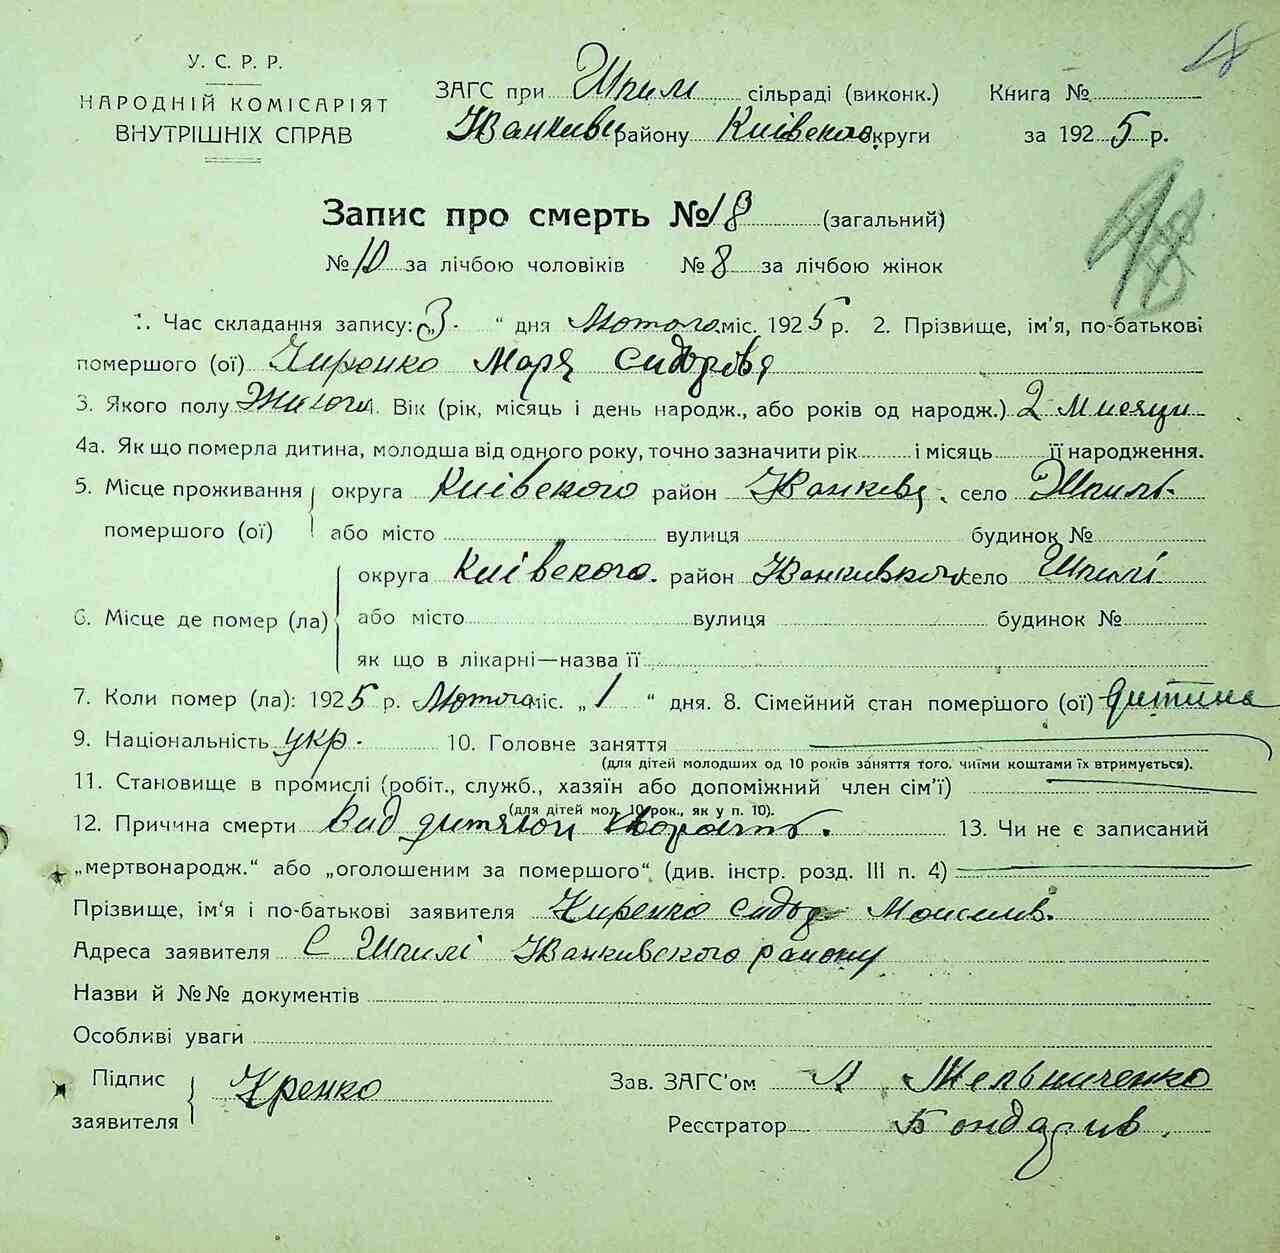 18
У. С. Р. Р.
НАРОДНІЙ КОМІСАРІЯТ
ВНУТРІШНІХ СПРАВ
ЗАГС при Шпилі сільраді (виконк.) Книга №
Іванкивс району Київского округи за 1925 р.
Запис про смерть № 18 (загальний)
№ 10 за лічбою чоловіків № 8 за лічбою жінок
1. Час складання запису: „3 “ дня Лютого міс. 1925 р. 2. Прізвище, ім'я, по-батькові
помершого (ої) Киренко Марія Сидорівя
3. Якого полу Жиного 4. Вік (рік, місяць і день народж., або років од народж.) 2 Мисяци
4а. Як що померла дитина, молодша від одного року, точно зазначити рік і місяць її народження.
5. Місце проживання округа Київского район Іванкивс. село Шпиль
помершого (ої) або місто вулиця будинок №
округа Київского район Іванкивского село Шпилі
6. Місце де помер (ла) або місто вулиця будинок №
як що в лікарні—назва її
7. Коли помер (ла): 1925 р. Лютого міс. „1 “ дня. 8. Сімейний стан помершого (ої) дитина
9. Національність укр. 10. Головне заняття
(для дітей молодших од 10 років заняття того, чиїми коштами їх втримується).
11. Становище в промислі (робіт., служб., хазяїн або допоміжний член сім'ї)
(для дітей мол. 10 рок., як у п. 10).
12. Причина смерти Вид дитячой хворости. 13. Чи не є записаний
„мертвонародж.“ або „оголошеним за помершого“ (див. інстр. розд. III п. 4)
Прізвище, ім'я і по-батькові заявителя Киренко Сидор Моисеив.
Адреса заявителя С Шпилі Іванкивского району
Назви й №№ документів
Особливі уваги
Підпис заявителя Кренко Зав. ЗАГС'ом Мельниченко
Реєстратор Бондарив.